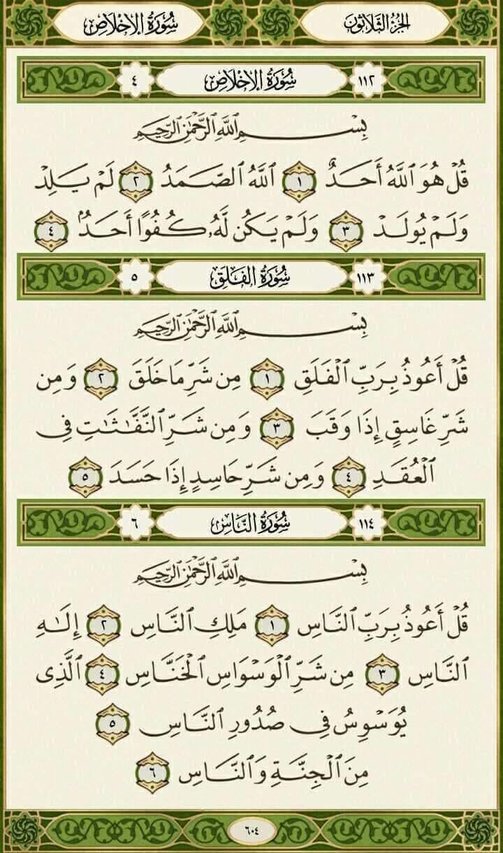 الجزء الثلاثون
سورة الإخلاص
١١٢ سُورَةُ الإِخْلَاصِ ٤
بِسْمِ اللَّهِ الرَّحْمَٰنِ الرَّحِيمِ
قُلْ هُوَ ٱللَّهُ أَحَدٌ ١ ٱللَّهُ ٱلصَّمَدُ ٢ لَمْ يَلِدْ
وَلَمْ يُولَدْ ٣ وَلَمْ يَكُن لَّهُۥ كُفُوًا أَحَدٌۢ ٤
١١٣ سُورَةُ الفَلَقِ ٥
بِسْمِ اللَّهِ الرَّحْمَٰنِ الرَّحِيمِ
قُلْ أَعُوذُ بِرَبِّ ٱلْفَلَقِ ١ مِن شَرِّ مَا خَلَقَ ٢ وَمِن
شَرِّ غَاسِقٍ إِذَا وَقَبَ ٣ وَمِن شَرِّ ٱلنَّفَّٰثَٰتِ فِى
ٱلْعُقَدِ ٤ وَمِن شَرِّ حَاسِدٍ إِذَا حَسَدَ ٥
١١٤ سُورَةُ النَّاسِ ٦
بِسْمِ اللَّهِ الرَّحْمَٰنِ الرَّحِيمِ
قُلْ أَعُوذُ بِرَبِّ ٱلنَّاسِ ١ مَلِكِ ٱلنَّاسِ ٢ إِلَٰهِ
ٱلنَّاسِ ٣ مِن شَرِّ ٱلْوَسْوَاسِ ٱلْخَنَّاسِ ٤ ٱلَّذِى
يُوَسْوِسُ فِى صُدُورِ ٱلنَّاسِ ٥
مِنَ ٱلْجِنَّةِ وَٱلنَّاسِ ٦
٦٠٤